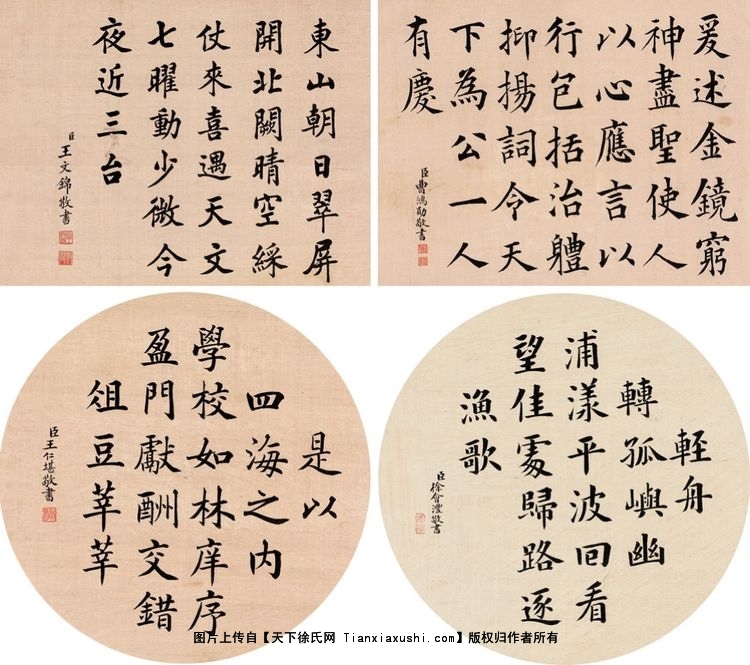 東山朝日翠屏
開北闕晴空綵
仗來喜遇天文
七曜動少微今
夜近三台
臣王文錦敬書
爰述金鏡窮
神盡聖使人
以心應言以
行包括治體
抑揚詞令天
下為公一人
有慶
臣曹鴻勛敬書
是以
四海之内
學校如林庠序
盈門獻酬交錯
俎豆莘莘
臣王仁堪敬書
輕舟
轉孤嶼幽
浦漾平波回看
望佳處歸路逐
漁歌
臣徐會灃敬書
图片上传自【天下徐氏网 Tianxiaxushi.com】版权归作者所有